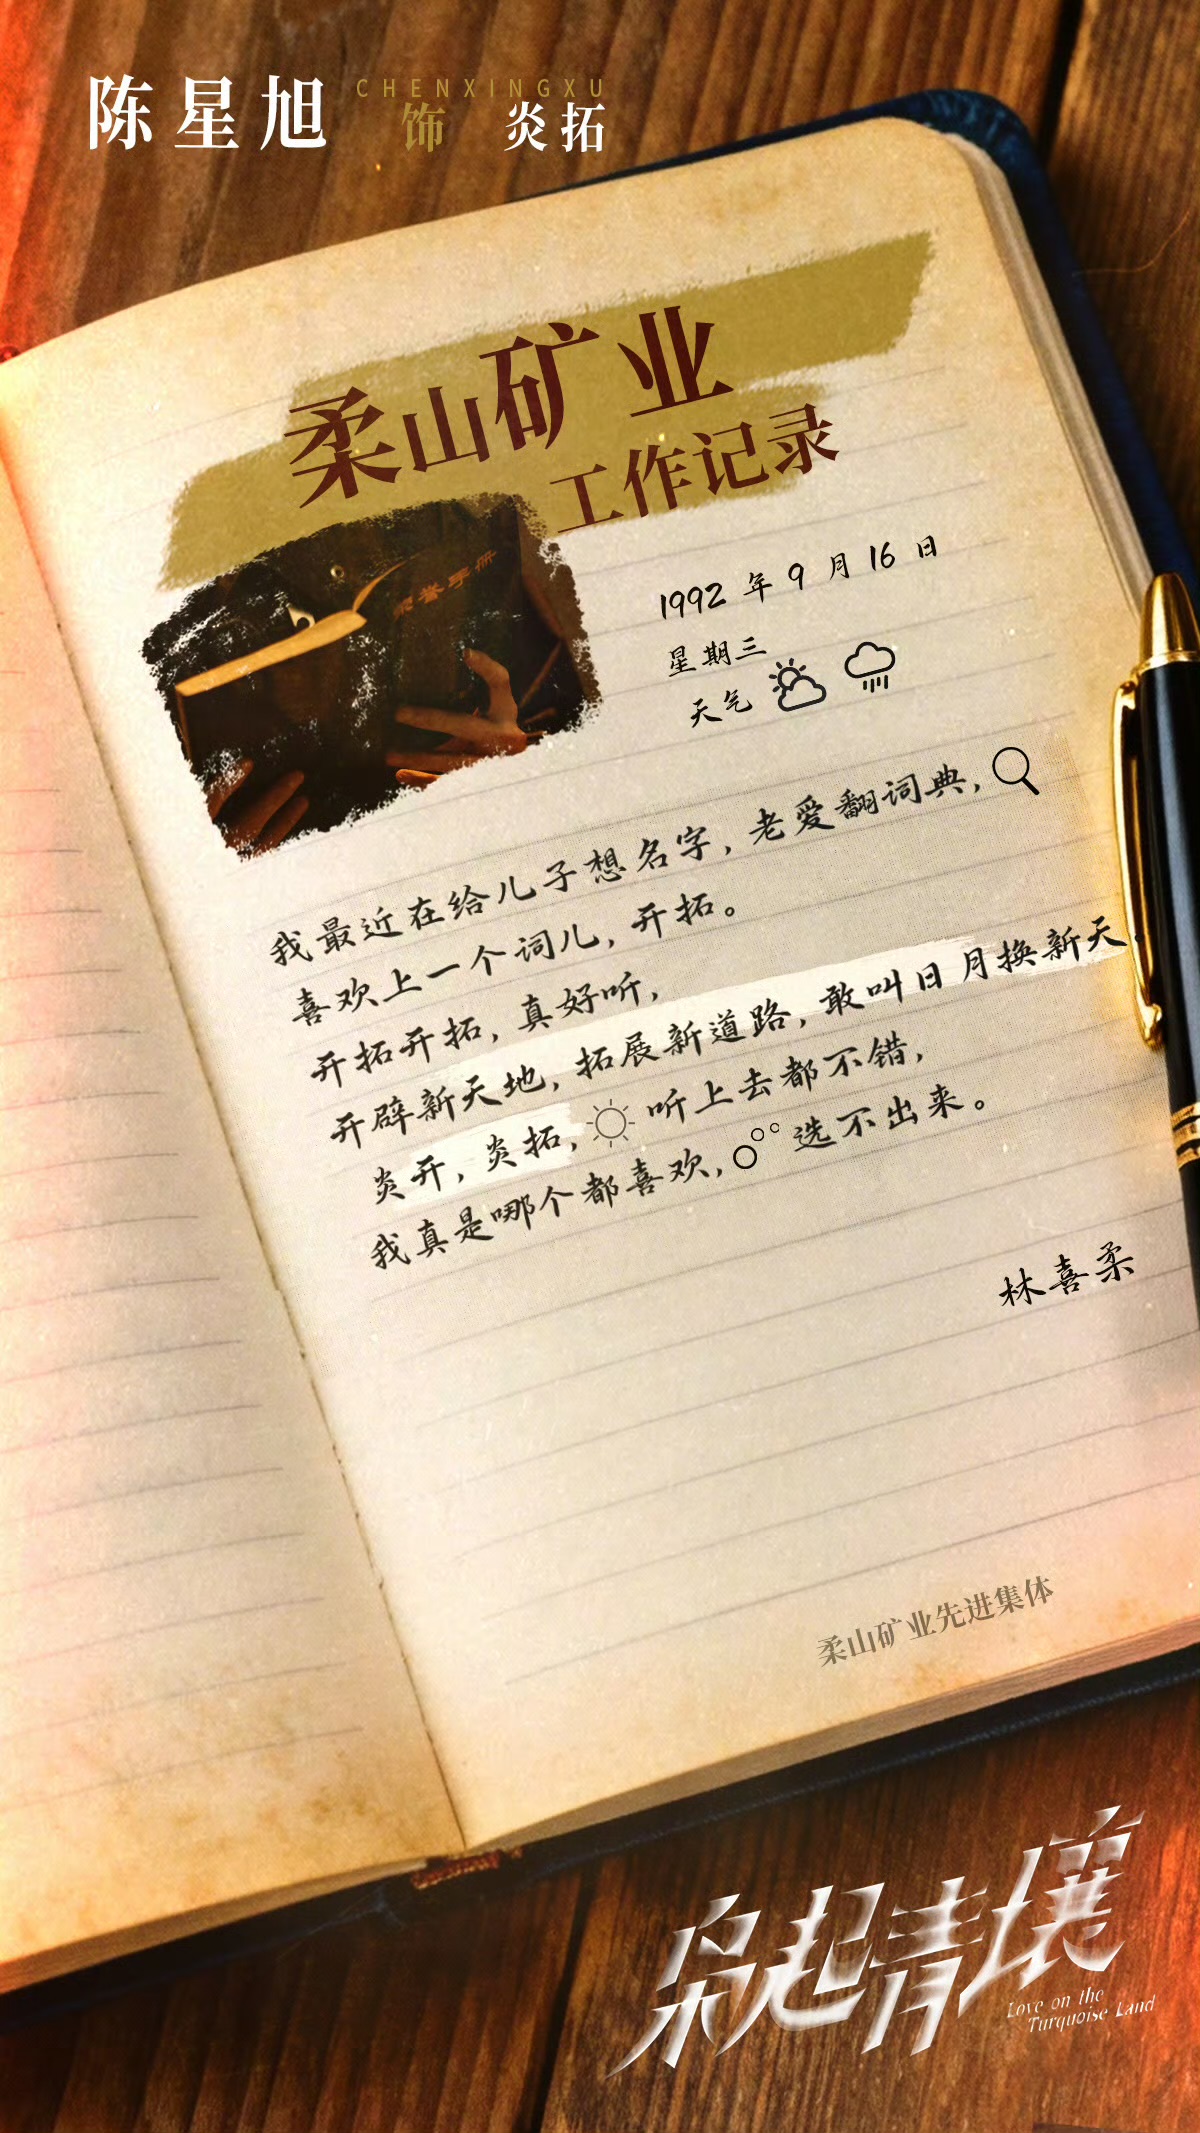 陈星旭 CHENXINGXU 饰 炎拓
柔山矿业
工作记录
荣誉手册
1992 年 9 月 16 日
星期三
天气
我最近在给儿子想名字，老爱翻词典，
喜欢上一个词儿，开拓。
开拓开拓，真好听，
开辟新天地，拓展新道路，敢叫日月换新天
炎开，炎拓，听上去都不错，
我真是哪个都喜欢，选不出来。
林喜柔
柔山矿业先进集体
枭起青壤
Love on the
Turquoise Land